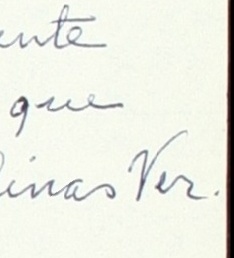 ente
que
inas Ver.